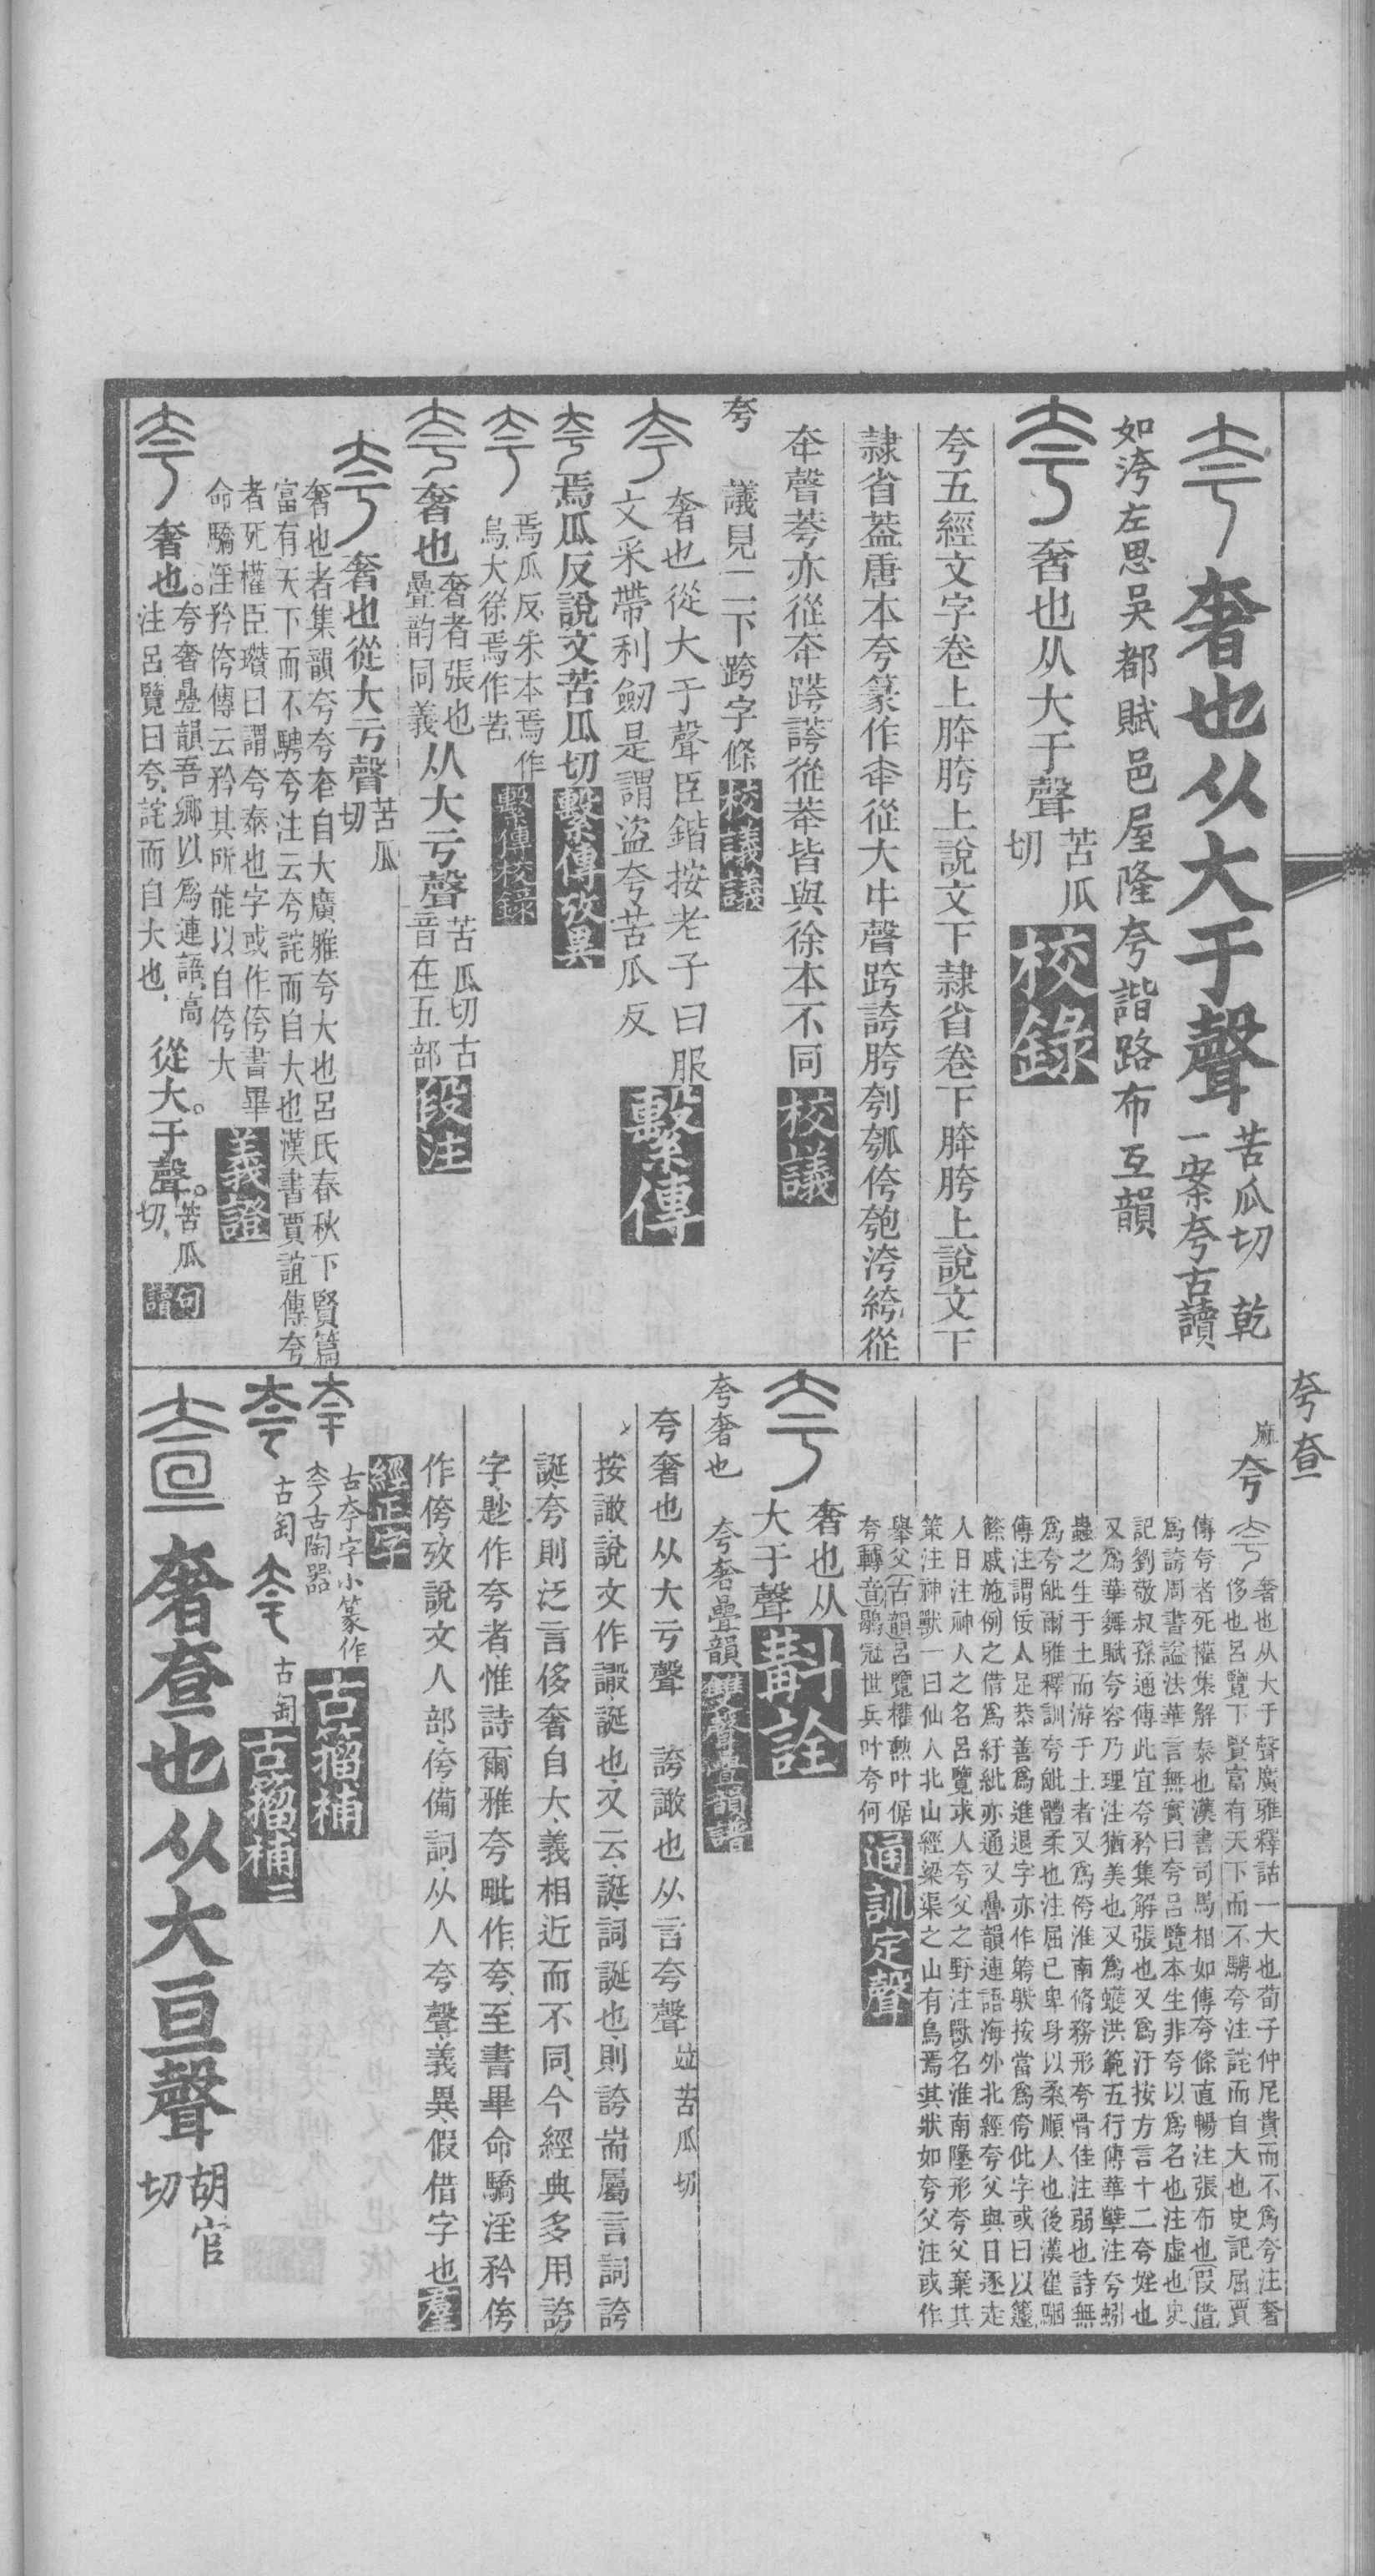 夸查
奢也从大于聲 苦瓜切 乾
一案夸古讀
如洿左思吳都賦邑屋隆夸諧路布互韻
奢也从大于聲 苦瓜
切 校錄
夸五經文字卷上胯上說文下隷省卷下胯上說文下
隸省葢唐本夸篆作 從大 聲跨誇胯刳瓠侉匏洿絝從
夲聲荂亦從夲 皆與徐本不同 校議
夸 議見二下跨字條 校議議
奢也從大于聲臣鍇按老子曰服
文采帶利劒是謂盜夸苦瓜反 繫傳
焉瓜反說文苦瓜切 繫傳攷異
焉瓜反朱本焉作
烏大徐焉作苦 繫傳校錄
奢也 奢者張也
疊韵同義 从大亏聲 苦瓜切古
音在五部 段注
奢也從大亏聲 苦瓜
切
奢也者集韻夸夸奆自大廣雅夸大也呂氏春秋下賢篇
富有天下而不騁夸注云夸詫而自大也漢書賈誼傳夸
者死權臣瓚曰謂夸泰也字或作侉書畢
命驕淫矜侉傳云矜其所能以自侉大 義證
奢也。 夸奢疊韻吾鄉以爲連語高
注呂覽曰夸詫而自大也 從大。于聲。 苦瓜
切 句讀
麻 夸
奢也从大于聲廣雅釋詁一大也荀子仲尼貴而不爲夸注奢
侈也呂覽下賢富有天下而不騁夸注詫而自大也史記屈賈
傳夸者死權集解泰也漢書司馬相如傳夸條直暢注張布也叚借
爲誇周書諡法華言無實曰夸呂覽本生非夸以爲名也注虛也史
記劉敬叔孫通傳此宜夸矜集解張也又爲汙按方言十二夸婬也
又爲華舞賦夸容乃理注猶美也又爲蠖洪範五行傳華孽注夸蚓
蟲之生于土而游于土者又爲侉淮南脩務形夸骨佳注弱也詩無
爲夸毗爾雅釋訓夸毗體柔也注屈已卑身以柔順人也後漢崔駰
傳注謂佞人足恭善爲進退字亦作 按當爲侉仳字或曰以籧
篨戚施例之借爲紆紕亦通又疊韻連語海外北經夸父與日逐走
人日注神人之名呂覽求人夸父之野注獸名淮南墬形夸父棄其
策注神獸一曰仙人北山經梁渠之山有鳥焉其狀如夸父注或作
舉父古韻呂覽權勳叶倨
夸轉音鶡冠世兵叶夸何 通訓定聲
奢也从
大于聲 斠詮
夸奢也 夸奢疊韻 雙聲疊韻譜
夸奢也从大亏聲 誇譀也从言夸聲 竝苦瓜切
按譀說文作 誕也又云誕詞誕也則誇耑屬言詞誇
誕夸則泛言侈奢自大義相近而不同今經典多用誇
字尟作夸者惟詩爾雅夸毗作夸至書畢命驕淫矜侉
作侉攷說文人部侉備詞从人夸聲義異假借字也 羣
經正字
古夸字小篆作
古陶器 古籀補
古匋 古匋 古籀補二
奢查也从大亘聲 胡官
切